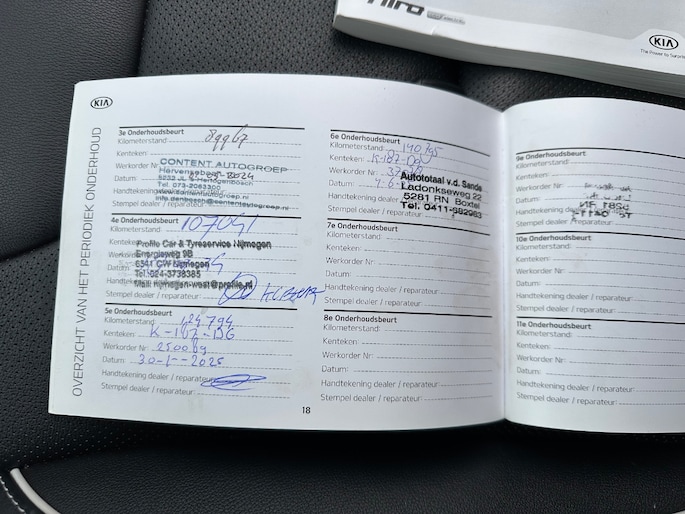 Niro
KIA
The Power to Surprise
KIA
OVERZICHT VAN HET PERIODIEK ONDERHOUD
3e Onderhoudsbeurt
Kilometerstand: 89967
Kenteken:
Werkorder Nr:
CONTENT AUTOGROEP
Hervensebaan
Datum:
5232 JL 's-Hertogenbosch
Tel. 073-2063300
Handtekening
www.contentautogroep.nl
info.denbosch@contentautogroep.nl
Stempel dealer / reparateur:
4e Onderhoudsbeurt
Kilometerstand: 107091
Kenteken:
Profile Car & Tyreservice Nijmegen
Werkorder
Energieweg 9B
Datum:
6541 CW Nijmegen
Tel: 024-3738385
Handtekening
Mail: nijmegen-west@profile.nl
Stempel dealer / reparateur:
5e Onderhoudsbeurt
Kilometerstand: 124794
Kenteken: K-187-DG
Werkorder Nr:
Datum: 30-1--2025
Handtekening dealer / reparateur:
Stempel dealer / reparateur:
18
6e Onderhoudsbeurt
Kilometerstand: 140195
Kenteken:
Werkorder Nr:
Datum:
Autototaal v.d. Sande
Ladonkseweg 22
5281 RN Boxtel
Tel. 0411-692983
Handtekening
Stempel dealer / reparateur:
7e Onderhoudsbeurt
Kilometerstand:
Kenteken:
Werkorder Nr:
Datum:
Handtekening dealer / reparateur:
Stempel dealer / reparateur:
8e Onderhoudsbeurt
Kilometerstand:
Kenteken:
Werkorder Nr:
Datum:
Handtekening dealer / reparateur:
Stempel dealer / reparateur:
9e Onderhoudsbeurt
Kilometerstand:
Kenteken:
Werkorder Nr:
Datum:
Handtekening
Stempel dealer / reparateur:
10e Onderhoudsbeurt
Kilometerstand:
Kenteken:
Werkorder Nr:
Datum:
Handtekening dealer / reparateur:
Stempel dealer / reparateur:
11e Onderhoudsbeurt
Kilometerstand:
Kenteken:
Werkorder Nr:
Datum:
Handtekening dealer / reparateur:
Stempel dealer / reparateur: